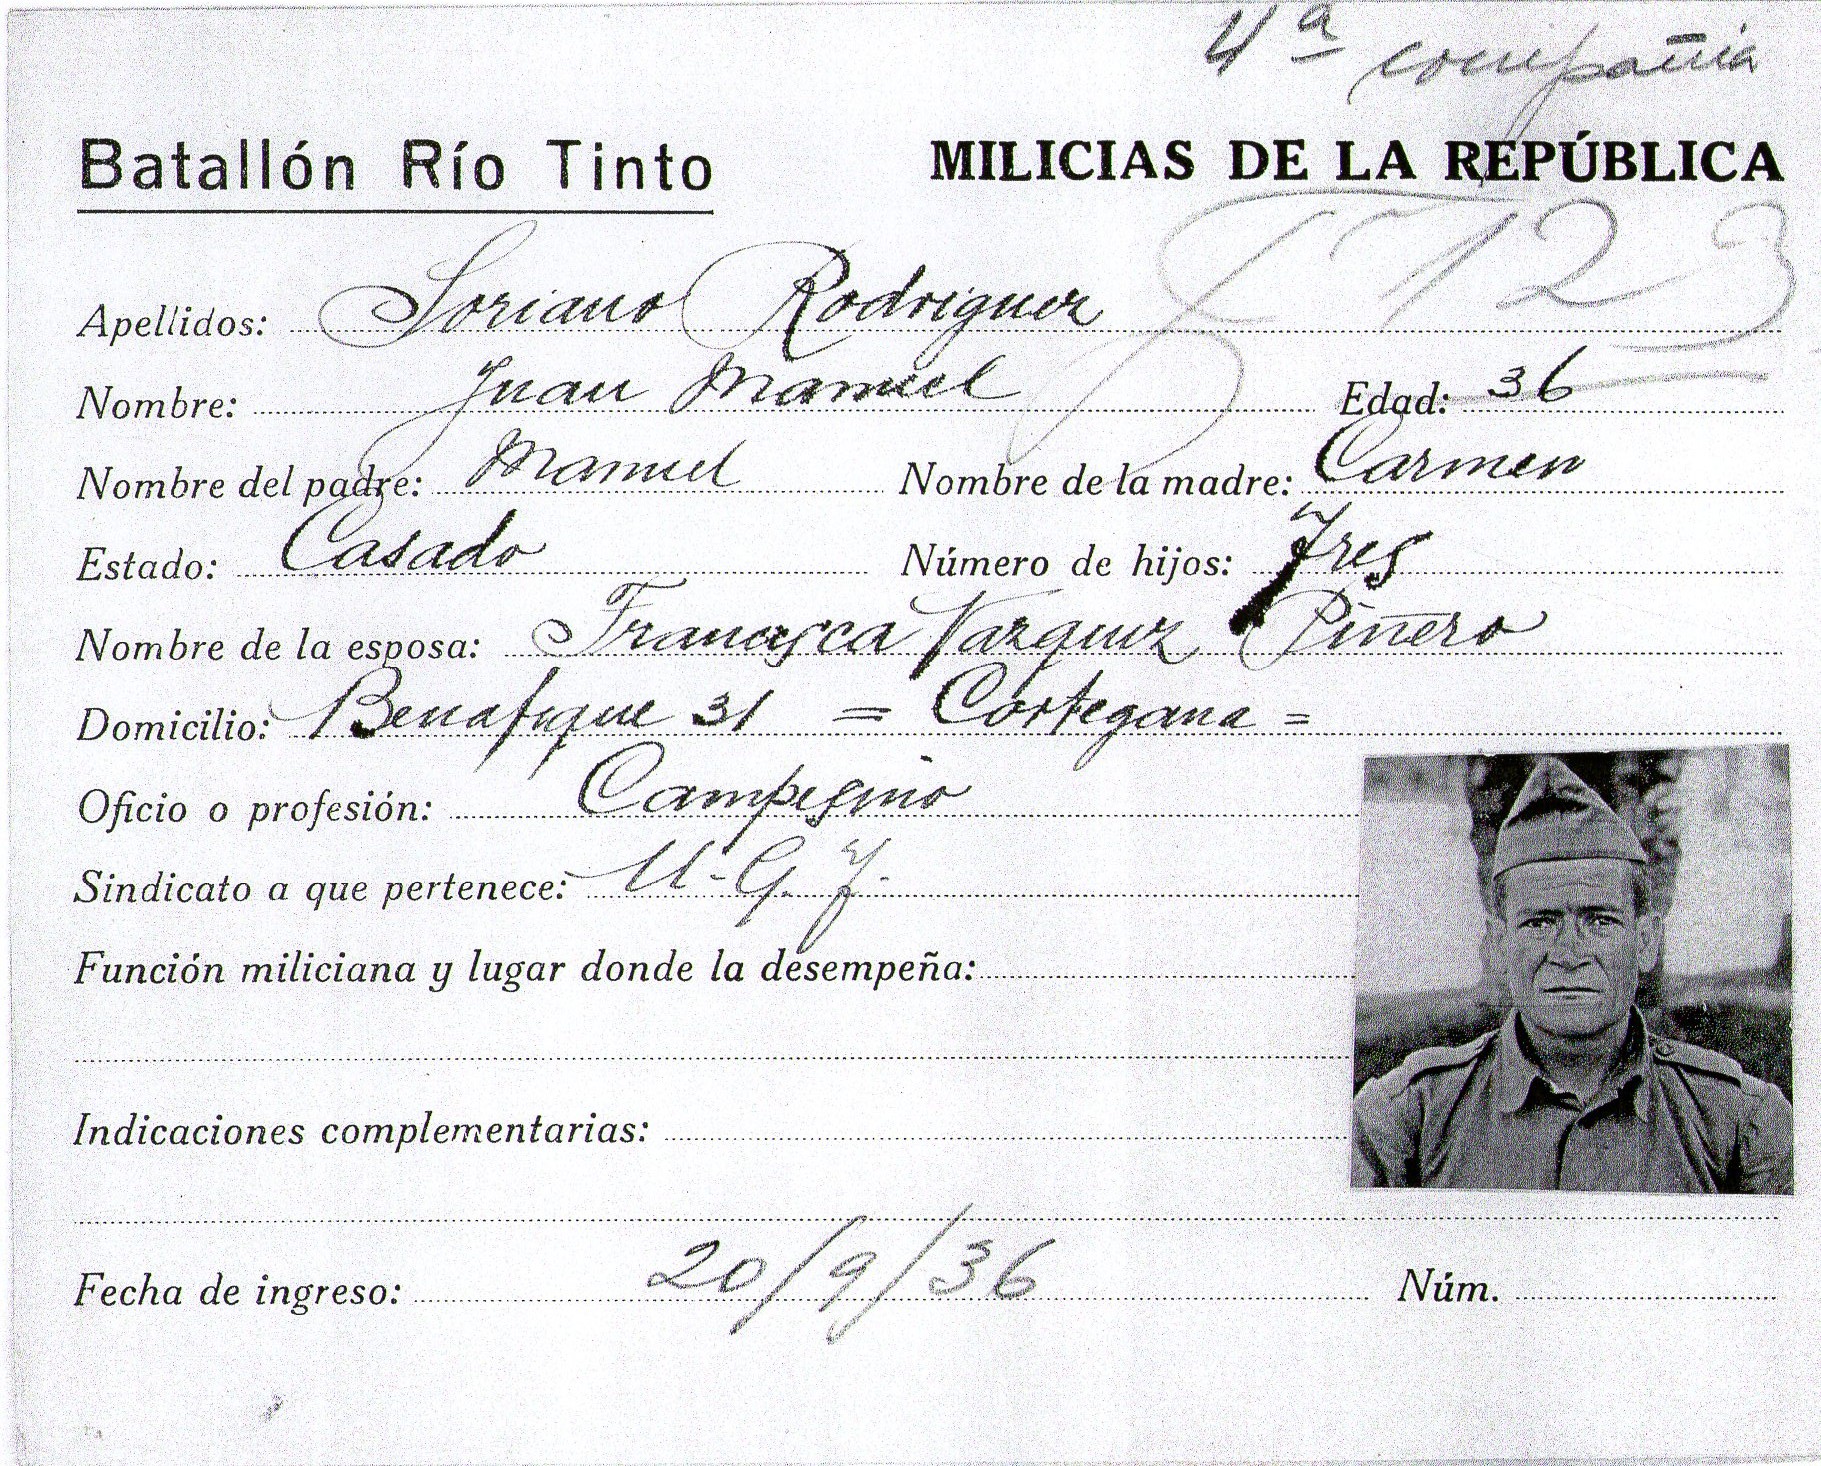 4ª compañia
Batallón Río Tinto MILICIAS DE LA REPÚBLICA
Apellidos: Soriano Rodriguez
Nombre: Juan Manuel Edad: 36
Nombre del padre: Manuel Nombre de la madre: Carmen
Estado: Casado Número de hijos: Tres
Nombre de la esposa: Francisca Vazquez Piñero
Domicilio: Benafique 31 = Cortegana =
Oficio o profesión: Campesino
Sindicato a que pertenece: U-G.T.
Función miliciana y lugar donde la desempeña:
Indicaciones complementarias:
Fecha de ingreso: 20/9/36 Núm.